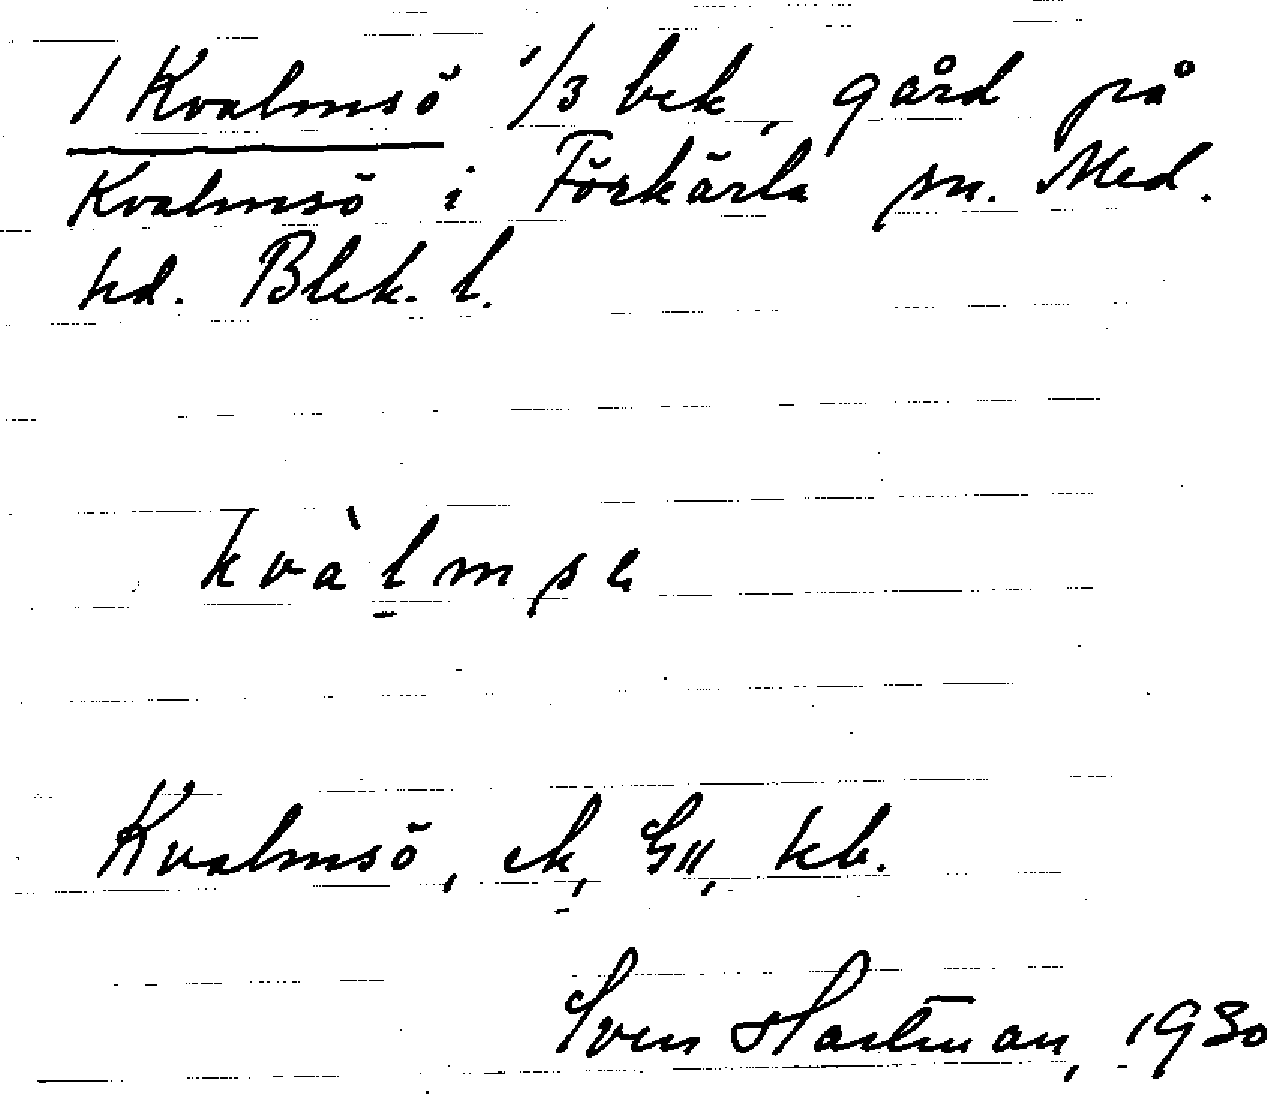 1 Kvalmsö 1/3 bek, gård på
Kvalmsö i Förkärla sn. Med.
hd. Blek. l.
kvàlmse
Kvalmsö, ek, GII, kb.
Sven Hartman, 1930